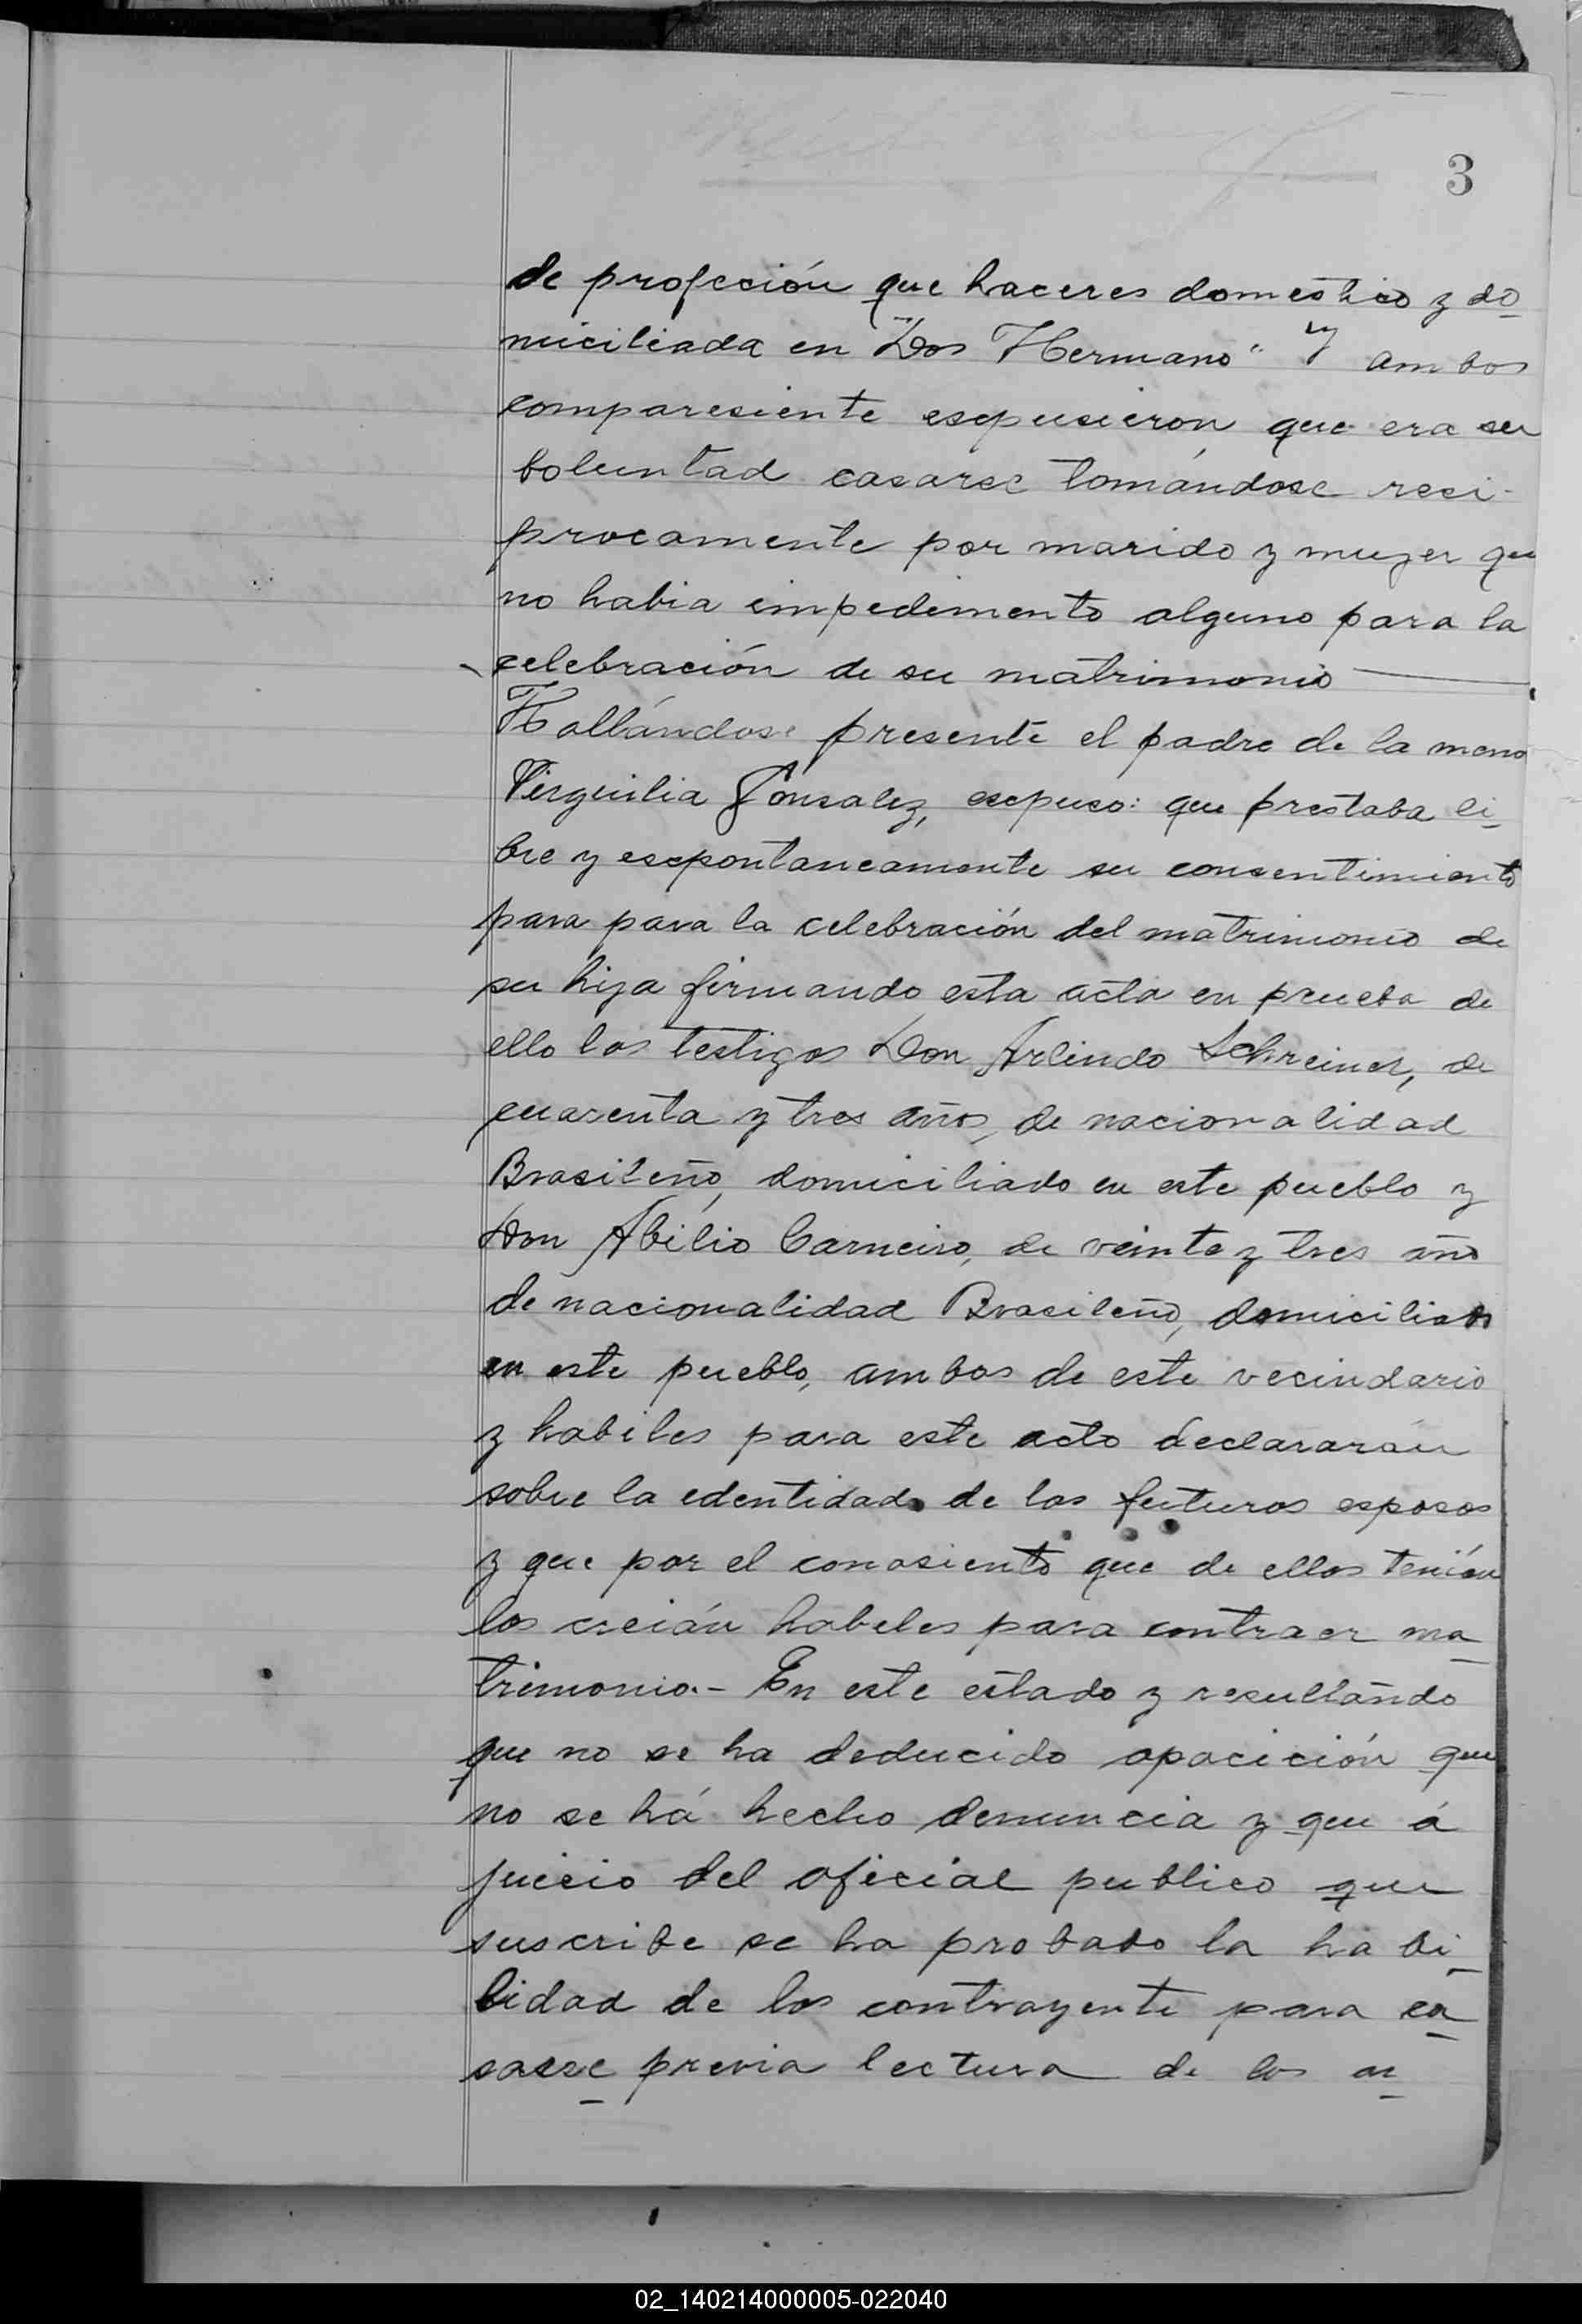 3
de profeción que haceres domestico y do
miciliada en "Dos Hermano" y ambos
comparesiente esepusieron que era su
boluntad casarse tomándose reci-
procamente por marido y muger que
no habia empedimento alguno para la
celebración de su matrimonio
Hallándose presente el padre de la meno
Virguilia Gonsalez, esepuso: que prestaba li
bre y esepontaneamente su consentimiento
para para la celebración del matrimonio de
su hija firmando esta acta en prueba de
ello los testigos Don Arlindo Schreiner, de
cuarenta y tres años, de nacionalidad
Brasileño, domiciliado en este pueblo y
Don Abilio Carneiro, de veinte y tres año
de nacionalidad Brasileño, domiciliado
en este pueblo, ambos de este vecindario
y habiles para este acto declararán
sobre la edentidad de los futuros esposos
y que por el conosiento que de ellos tenián
los creián habeles para contraer ma
trimonio.- En este estado y resultándo
que no se ha deducido opocición que
no se há hecho denuncia y que á
juicio del oficial publico que
suscribe se ha probado la habi
lidad de los contrayente para ca
sarse previa lectura de los ar
02_140214000005-022040